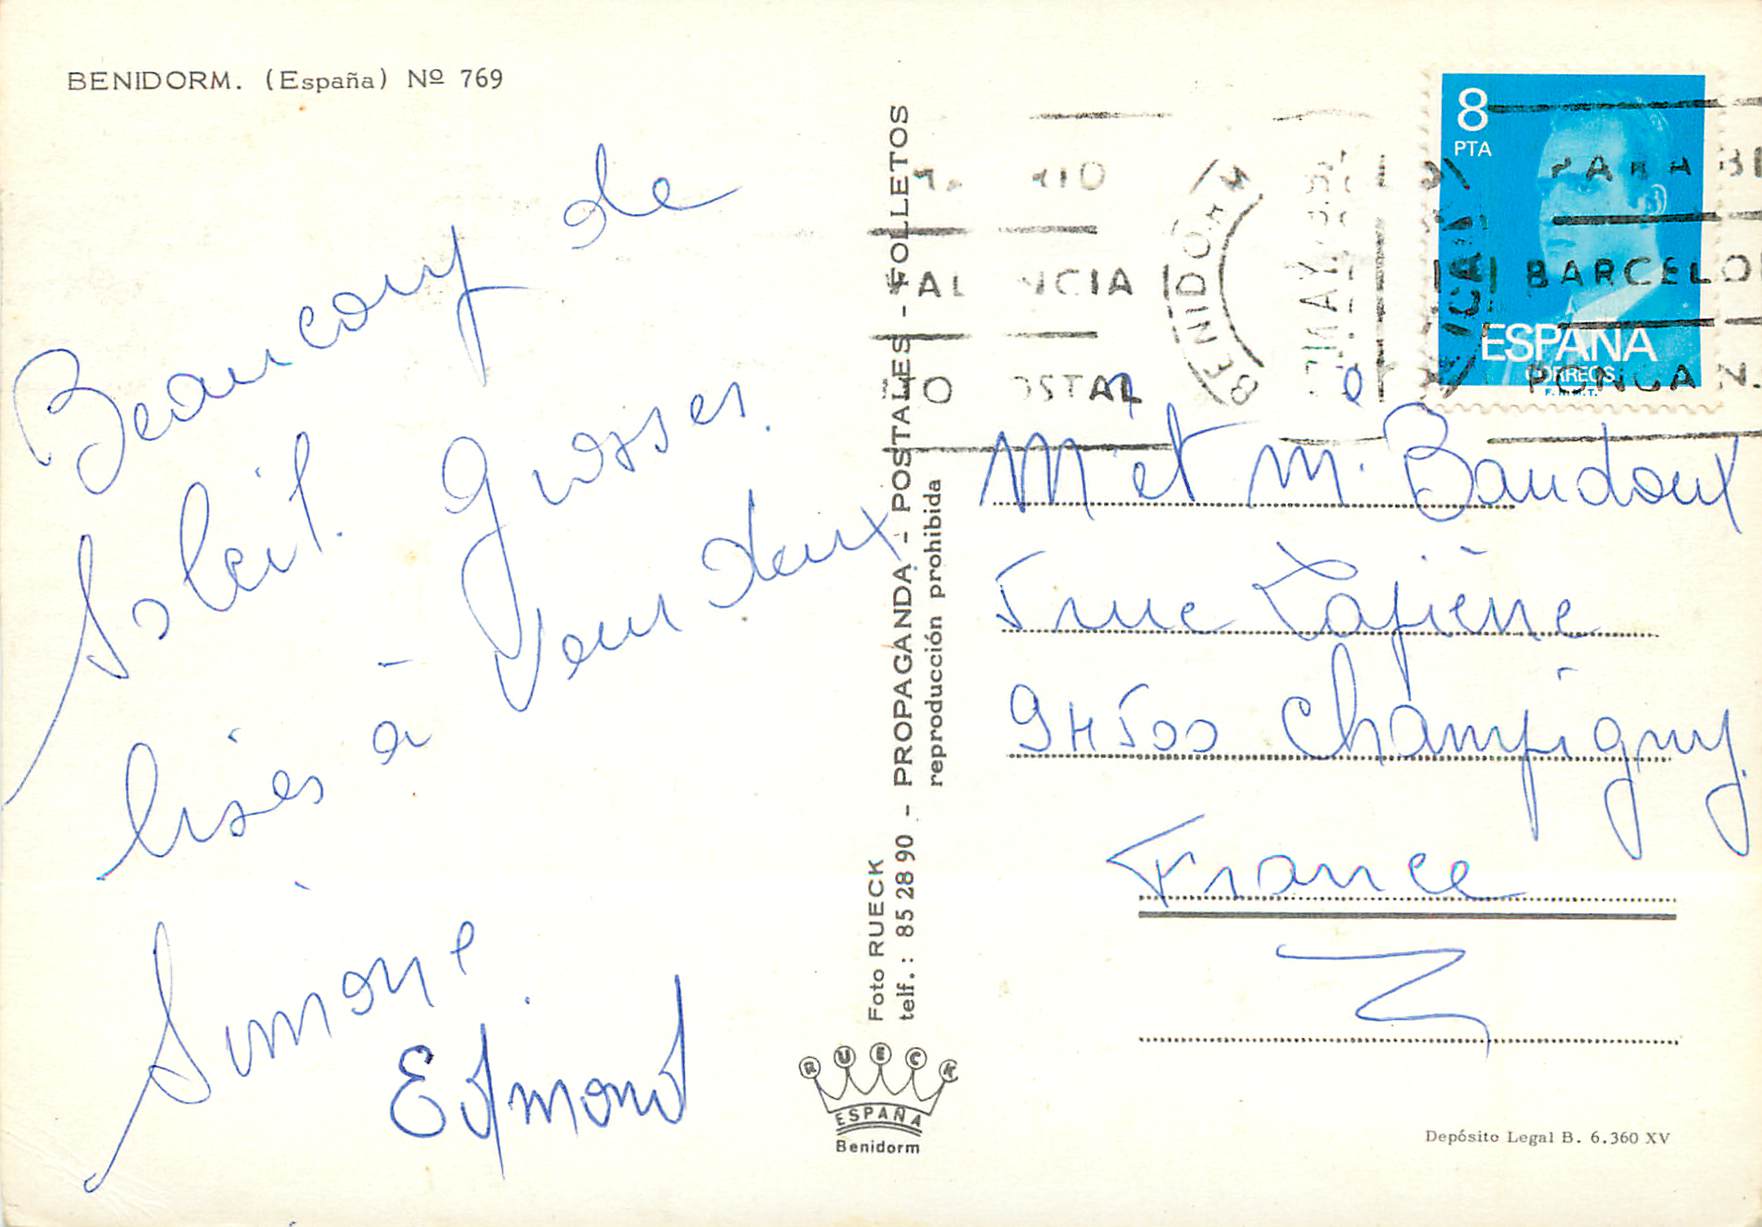 BENIDORM. (España) Nº 769
Beaucoup de
Soleil. Grosses
bises à Vous deux
Simone
Edmond
Foto RUECK
telf.: 85 28 90 - PROPAGANDA - POSTALES - FOLLETOS
reproducción prohibida
RUECK
ESPAÑA
Benidorm
8
PTA
ESPAÑA
CORREOS
F.N.M.T.
BENIDORM
MAY
ALICANTE
BARCELO
PONGA
Mr et m. Baudoux
5 rue Lafière
94500 Champigny
France
Depósito Legal B. 6.360 XV